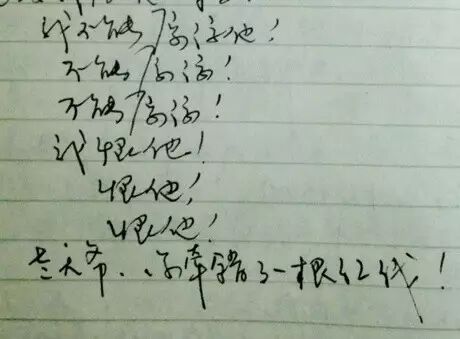 我不能原谅他！
不能原谅！
不能原谅！
我恨他！
恨他！
恨他！
老天爷、你牵错了一根红线！